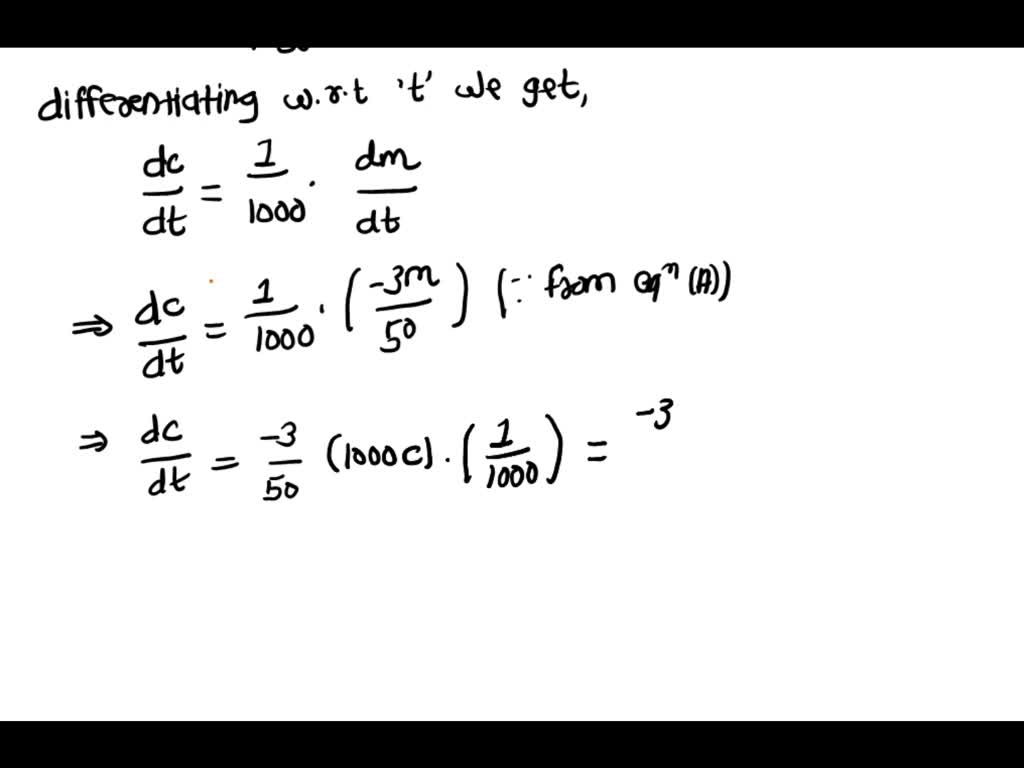 differentiating w.r.t 't' we get,
dc/dt = 1/1000 · dm/dt
⇒ dc/dt = 1/1000 · (-3m/50) (∵ from eqⁿ (A))
⇒ dc/dt = -3/50 (1000c) · (1/1000) = -3